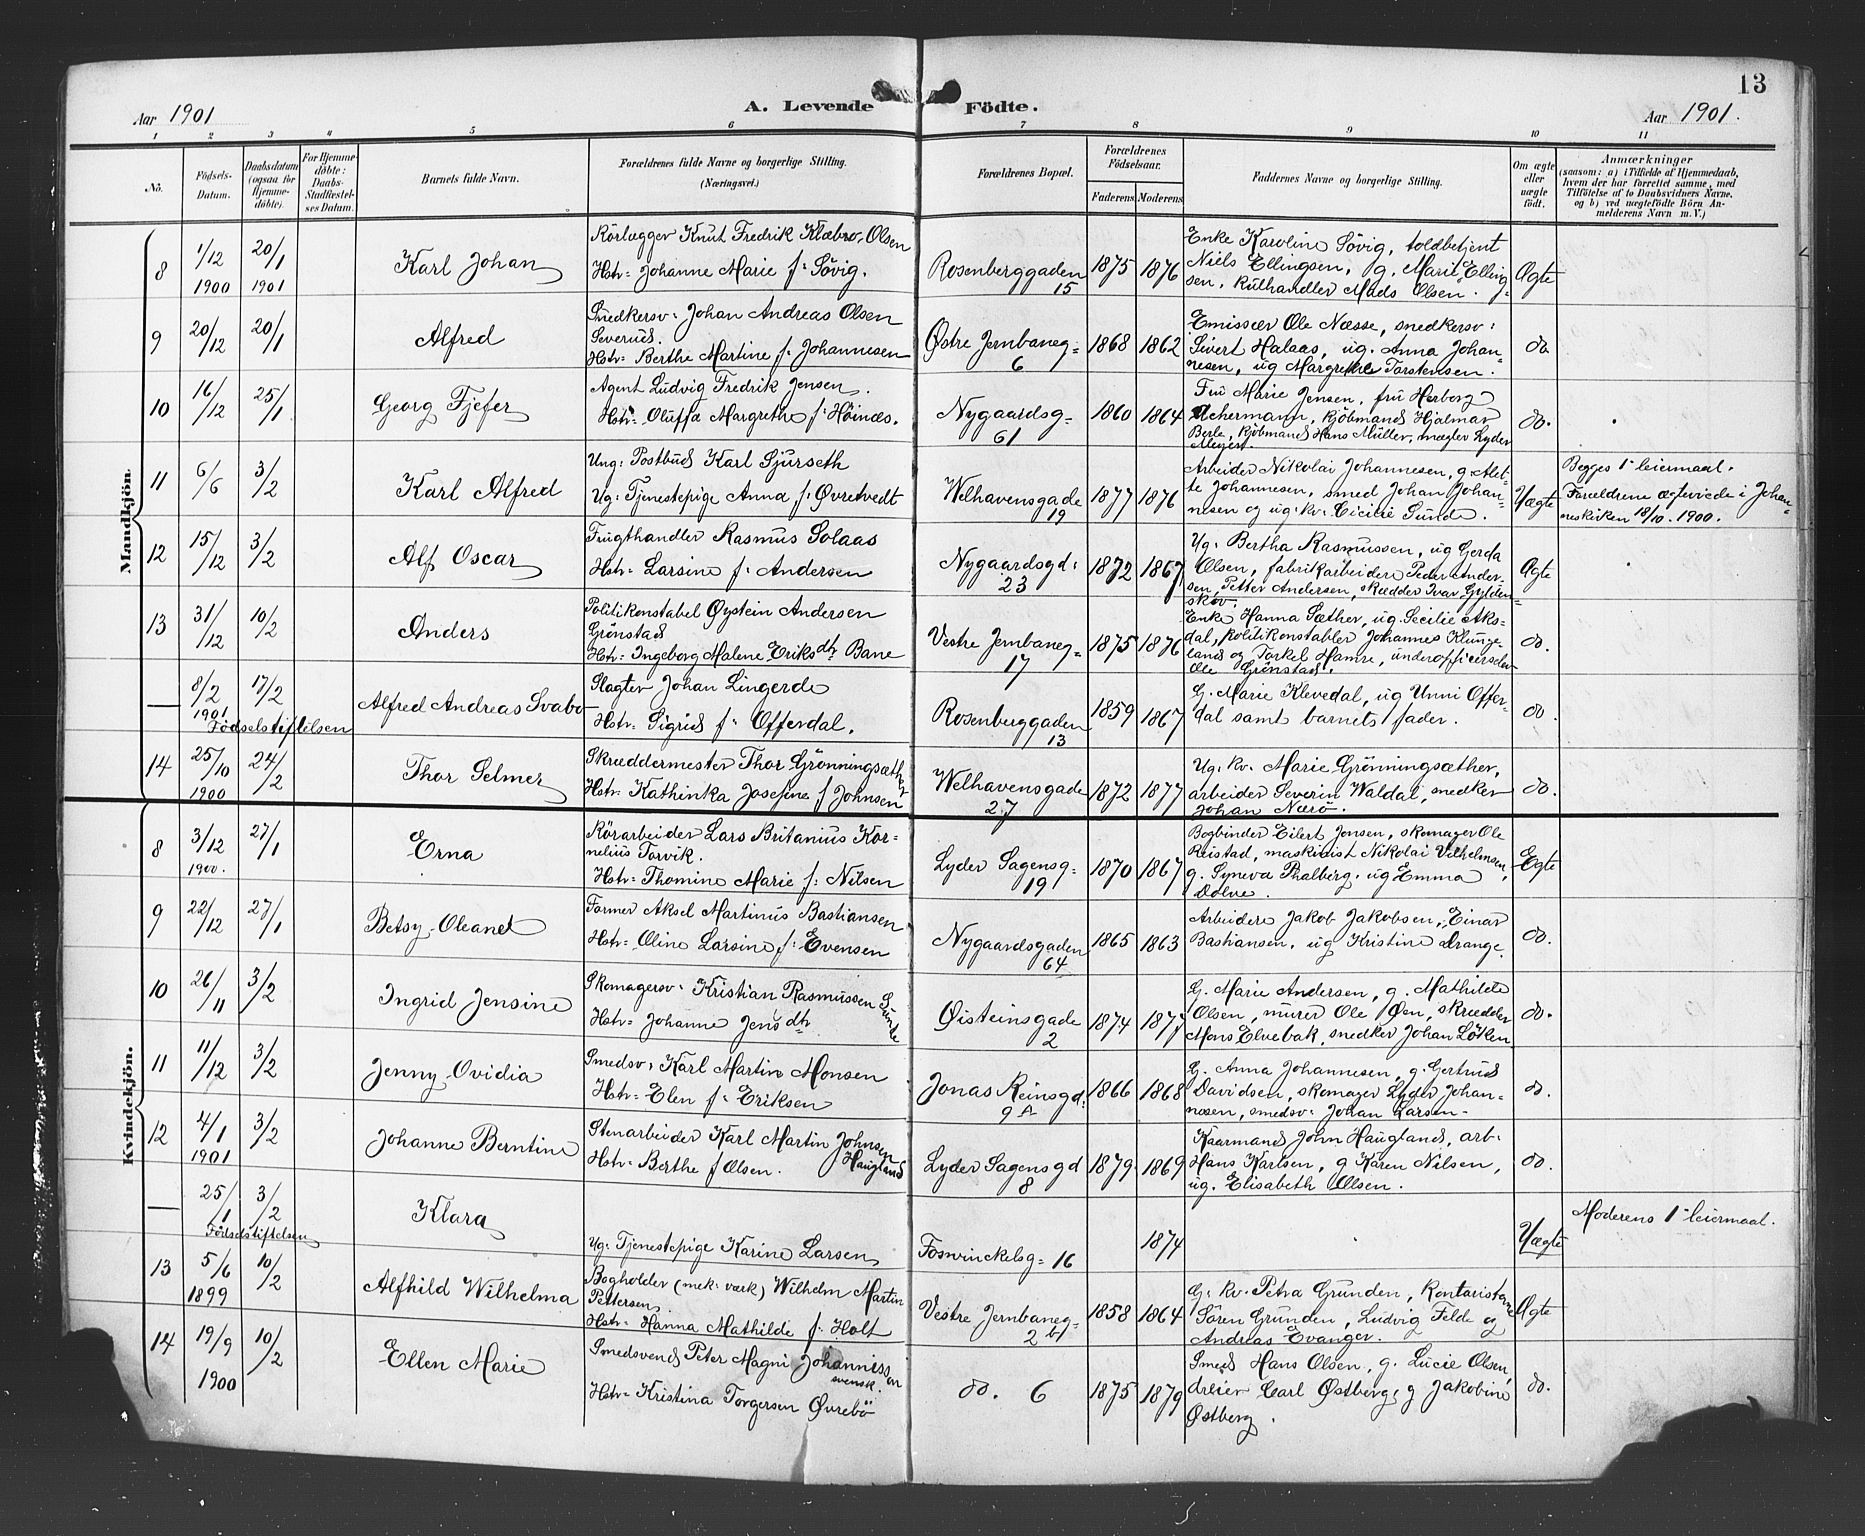 13
Aar 1901
A. Levende Födte.
Aar 1901.
1 2 3 4 5 6 7 8 9 10 11
No.
Födsels-
Datum.
Daabsdatum
(ogsaa for
Hjemme-
döbte).
For Hjemme-
döbte:
Daabs-
Stadfæstel-
ses Datum.
Barnets fulde Navn.
Forældrenes fulde Navne og borgerlige Stilling.
(Næringsvei.)
Forældrenes Bopæl.
Forældrenes
Födselsaar.
Faderens Moderens
Faddernes Navne og borgerlige Stilling.
Om ægte
eller
uægte
födt.
Anmærkninger
(saasom: a) i Tilfælde af Hjemmedaab,
hvem der har forrettet samme, med
Tilföielse af to Daabsvidners Navne.
og b) ved uægtefödte Börn An-
melderens Navn m. V.)
Mandkjön.
8
1/12
1900
20/1
1901
Karl Johan
Rörlægger Knut Fredrik Klæbro Olsen
Hstr= Johanne Marie f: Sövig.
Rosenberggaden
15
1875 1876
Enke Karoline Sövig, toldbetjent
Niels Ellingsen, g. Marit Elling-
sen, kulhandler Mads Olsen.
Ægte
9
20/12
20/1
Alfred
Snedkersv: Johan Andreas Olsen
Severud.
Hstr= Berthe Martine f: Johannesen
Østre Jernbaneg=
6
1868 1862
Emissær Ole Næsse, snedkersv:
Sivert Halaas, ug. Anna Johan-
nesen, ug Margrethe Torstensen.
do.
10
16/12
25/1
Georg Fjefer
Agent Ludvig Fredrik Jensen.
Hstr= Oluffa Margrethe f: Höinæs.
Nygaardsg=
61
1860 1864
Fru Marie Jensen, fru Herborg
Achermann, kjöbmand Hjalmar
Berle, kjöbmand Hans Müller, mægler Lyder
Meyer.
do.
11
6/6
3/2
Karl Alfred
Ung: Postbud Karl Sjurseth
Ug: Tjenestepige Anna f: Øvretvedt
Welhavensgade
19
1877 1876
Arbeider Nikolai Johannesen, g. Alet-
te Johannesen, smed Johan Johan-
nesen og ug: kv: Cicilie Sunde.
Uægte
Begges 1' leiermaal.
Forældrene ægteviede i Johan-
neskirken 18/10. 1900.
12
15/12
3/2
Alf Oscar
Frugthandler Rasmus Solaas
Hstr= Larsine f: Andersen
Nygaardsgd:
23
1872 1867
Ug: Bertha Rasmussen, ug Gerda
Olsen, fabrikarbeidere Peder Ander-
sen, Petter Andersen, skrædder Ivar Gylden-
skov.
Ægte
13
31/12
10/2
Anders
Politikonstabel Øystein Andersen
Grönstad
Hstr= Ingeborg Malene Eriksdtr Bane
Vestre Jernbaneg=
17
1875 1876
Enke Hanna Sæther, ug Secilie Aks-
dal, politikonstabler Johannes Klunge-
land og Torkel Hamre, underofficerselev
Ole Grönstad.
do.
8/2
1901
17/2
Födselstiftelsen
Alfred Andreas Svabo
Slagter Johan Lingerde
Hstr= Sigrid f: Offerdal.
Rosenberggaden
13
1859 1867
G. Marie Klevedal, ug Unni Offer-
dal samt barnets fader.
do.
14
25/10
1900
24/2
Thor Selmer
Skræddermester Thor Grönningsæther
Hstr= Kathinka Josefine f Johnsen
Welhavensgade
27
1872 1877
Ug: kv. Marie Grönningsæther,
arbeider Severin Waldal, snedker
Johan Nærö.
do.
Kvindekjön.
8
3/12
1900.
27/1
Erna
Rörarbeider Lars Britanius Kor=
nelius Torvik.
Hstr= Thomine Marie f: Nilsen
Lyder Sagensg:
19
1870 1867
Bogbinder Eilert Jensen, skomager Ole
Reistad, maskinist Nikolai Vilhelmsen,
g. Syneva Phalberg, ug Emma
Dolve.
Egte
9
22/12
27/1
Betsy Oleanet
Former Aksel Martinus Bastiansen
Hstr= Oline Larsine f: Evensen
Nygaardsgaden
64
1865 1863
Arbeidere Jakob Jakobsen, Einar
Bastiansen, ug Kristine Drange.
do.
10
26/11
3/2
Ingrid Jensine
Skomagersv: Kristian Rasmussen Sunde
Hstr= Johanne Jensdtr
Øisteinsgade
2
1874 1877
G. Marie Andersen, g. Mathilde
Olsen, murer Ole Øen, skrædder
Mons Elvebak, snedker Johan Löken
do.
11
11/12
3/2
Jenny Ovidia
Smedsv: Karl Martin Monsen
Hstr= Elen f: Eriksen
Jonas Reinsgd:
9 A
1866 1868
G. Anna Johannesen, g. Gertrud
Davidsen, skomager Lyder Johan-
nesen, smedsv: Johan Larsen.
do.
12
4/1
1901
3/2
Johanne Berntine
Stenarbeider Karl Martin Johnsen
Haugland
Hstr= Berthe f Olsen.
Lyder Sagensgd
8
1879 1869
Kaarmand John Haugland, arb:
Hans Karlsen, g Karen Nilsen,
ug. Elisabeth Olsen.
do.
25/1
3/2
Födselstiftelsen
Klara
Ug: Tjenestepige Karine Larsen
Fosswinckelsg= 16
1874
Uægte
Moderens 1' leiermaal.
13
5/6
1899
10/2
Alfhild Wilhelma
Bogholder (mek: værk) Wilhelm Martin
Pettersen.
Hstr= Hanna Mathilde f: Holt
Vestre Jernbaneg=
2 b/
1858 1864
G: kv. Petra Grunden, kontoristerne
Sören Grunden, Ludvig Felde og
Andreas Evanger.
Ægte
14
19/9
1900
10/2
Ellen Marie
Smedsvend Peter Magni Johannisson
svensk.
Hstr= Kristina Torgersen Øvrebö
do. 6
1875 1879
Smed Hans Olsen, g. Lucie Olsen,
dreier Carl Østberg, g Jakobine
Østberg.
do.